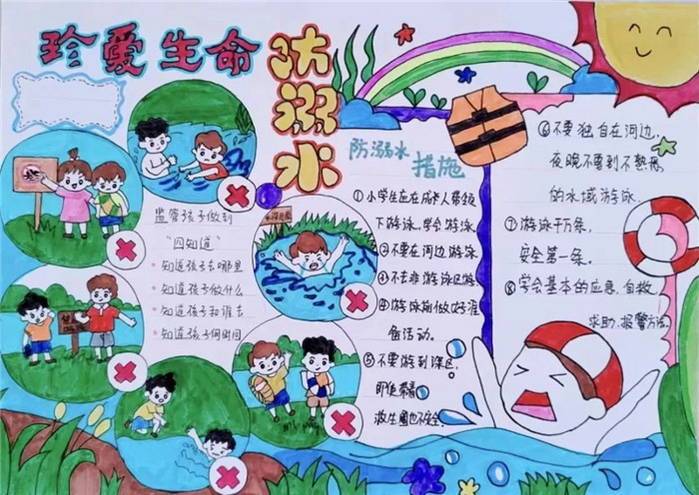 珍爱生命
防溺水
监管孩子做到
“四知道”
知道孩子去哪里
知道孩子做什么
知道孩子和谁去
知道孩子何时回
防溺水 措施
①小学生应在成人带领
下游泳。学会游泳
②不要在河边游泳
③不去非游泳区游
④游泳前做好准
备活动。
⑤不要游到深区,
即使带着
救生圈也不安全.
⑥不要独自在河边.
夜晚不要到不熟悉
的水域游泳.
⑦游泳千万条,
安全第一条。
⑧学会基本的应急.自救.
求助.报警方法。